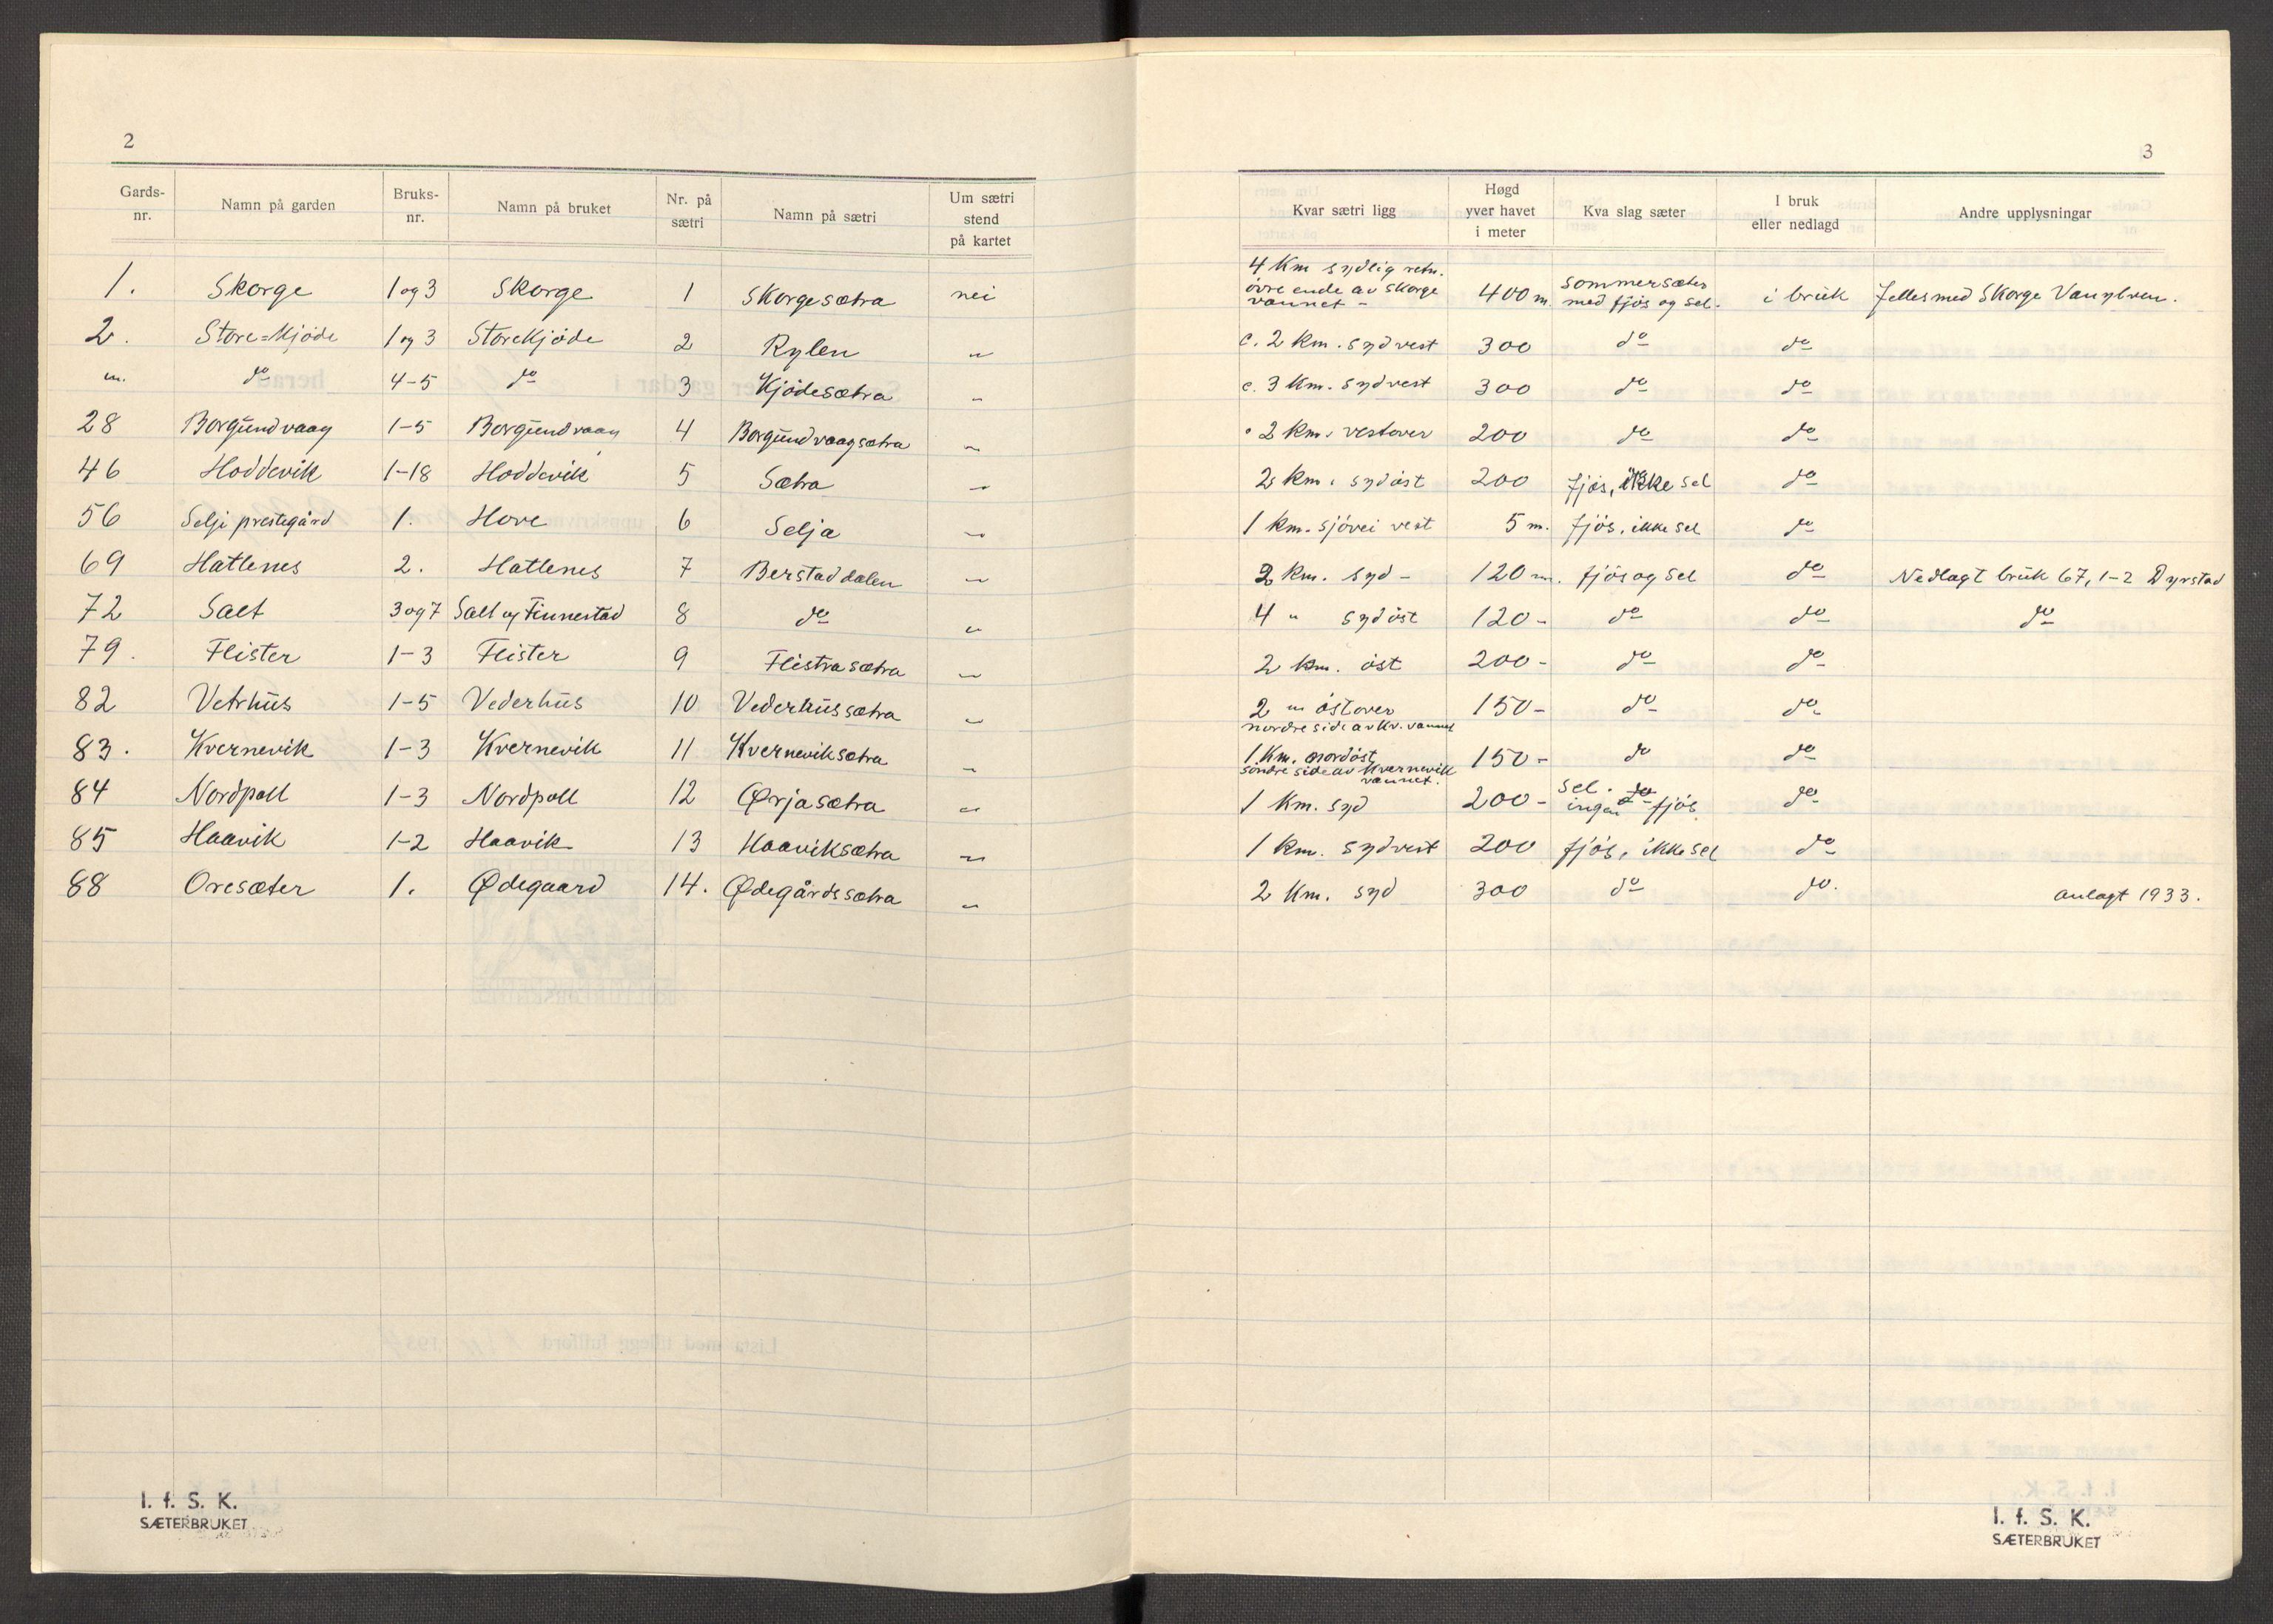 2
Gards-nr. Namn på garden Bruks-nr. Namn på bruket Nr. på sætri Namn på sætri Um sætri stend på kartet
1. Skorge 1 og 3 Skorge 1 Skorgesætra nei
2. Store=Kjöde 1 og 3 Storekjöde 2 Rylen "
" do 4-5 do 3 Kjödesætra "
28 Borgundvaag 1-5 Borgundvaag 4 Borgundvaagsætra "
46 Hoddevik 1-18 Hoddevik 5 Sætra "
56 Selje prestegård 1. Hove 6 Selja "
69 Hattenes 2. Hattenes 7 Berstaddalen "
72 Salt 3 og 7 Salt og Finnestad 8 do "
79. Fleister 1-3 Fleister 9 Fleistrasætra "
82 Vetrhus 1-5 Vederhus 10 Vederhussætra "
83. Kvernevik 1-3 Kvernevik 11 Kverneviksætra "
84 Nordpoll 1-3 Nordpoll 12 Ørjasætra "
85 Haavik 1-2 Haavik 13 Haaviksætra "
88 Oresæter 1. Ødegaard 14. Ødegårdssætra "
I. f. S. K.
SÆTERBRUKET
3
Kvar sætri ligg Høgd yver havet i meter Kva slag sæter I bruk eller nedlagd Andre upplysningar
4 Km sydlig retn. övre ende av Skorge vannet - 400 m. sommersæter med fjös og sel. i bruk Felles med Skorge Vanylven.
c. 2 Km. sydvest 300 do do
c. 3 Km. sydvest 300 do do
" 2 Km. vestover 200 do do
2 Km. sydöst 200 fjös, ikke sel do
1 Km. sjövei vest 5 m. fjös, ikke sel do
2 Km. syd - 120 m. fjös og sel do Nedlagt bruk 67, 1-2 Dyrstad
4 " sydöst 120 - do do do
2 Km. öst 200 - do do
2 " östover 150 - do do
nordre side av Kv. vannet
1 Km. nordöst 150 - do do
söndre side av Kvernevik vannet.
1 Km. syd 200 - sel. ingen fjös. do
1 Km. sydvest 200 fjös, ikke sel do
2 Km. syd 300 do do. anlagt 1933.
I. f. S. K.
SÆTERBRUKET